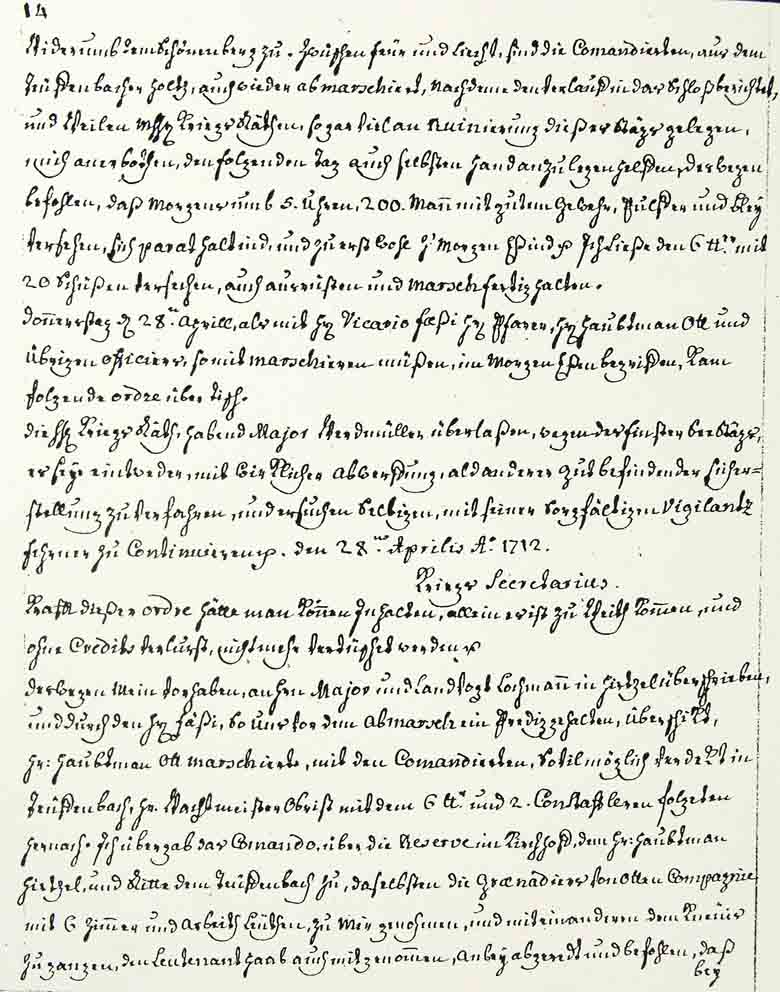 14
Widerumb dem Schönenberg zu. Zwüschen feür und liecht, sind die Comandierten, aus dem
Teüffenbacher holtz, auch wieder abmarschiert, nachdeme den verlauff in das Schloß berichtet,
und Weilen Kriegs Räthen, so gar viel an Ruinierung dießer gelegen,
mich anerbothen, den folgenden tag auch selbsten hand anzulegen helffen, deswegen
befohlen, daß Morgens umb 5. Uhren, 200. Mañ mit gutem Gewehr, Pulffer und Bley
versehen, sich parat haltind, und zuerst wohl z'Morgen Eßind Ich ließe den 6 mit
20 Schüßen versechen, auch ausrüsten und Marschfertig halten.
Doñerstag 28.ten Aprill, als mit Hr. Vicario Fæsi Hr. Pfarer, Hr. Haubtman Ott und
übrigen Officiers, so mit Marschieren müßen, im Morgen Eßen begriffen, Kam
folgende ordre über tisch.
die Kriegs Räth, habend Major Werdmüller überlaßen, wegen des finsteren
er seye eintweder, mit Würcklicher abwerffung, ald anderer gut befindender sicher=
stellung zu verfahren, und ersuchen Selbigen, mit seiner sorgfältigen Vigilantz
fehrner zu Continuieren. den 28.ten Aprilis Aº. 1712.
Kriegs Secretarius.
Krafft dießer ordre hätte man Köñen Inhalten, allein es ist zu Weith Kommen, und
ohne Credits verlurst, nicht mehr werden
deswegen Mein vorhaben, an hrn Major und Landvogt Lochmañ in Hirtzel überschrieben,
und durch den Hr. Fäsi, so uns vor dem Abmarsch ein Predig gehalten, überschikt,
Hr: Haubtman Ott Marschierte, mit den Comandierten, so vil möglich verdekt in
Teüffenbach, Hr. Wachtmeister Obrist mit dem 6 und 2. Constafleren folgeten
hernach. Ich übergab das Comando, über die Reserve im Kirchhoff, dem Hr: Haubtman
Hirtzel, und Ritte dem Teüffenbach zu, daselbsten die Grænadiers von Otten Compagnie
mit 6 Zimmer und Arbeith Leüthen, zu Mir genohmen, und mit einanderen dem
zu gangen, den Leutenant Haab auch mit genommen, Anbey abgeredt und befohlen, daß
bey